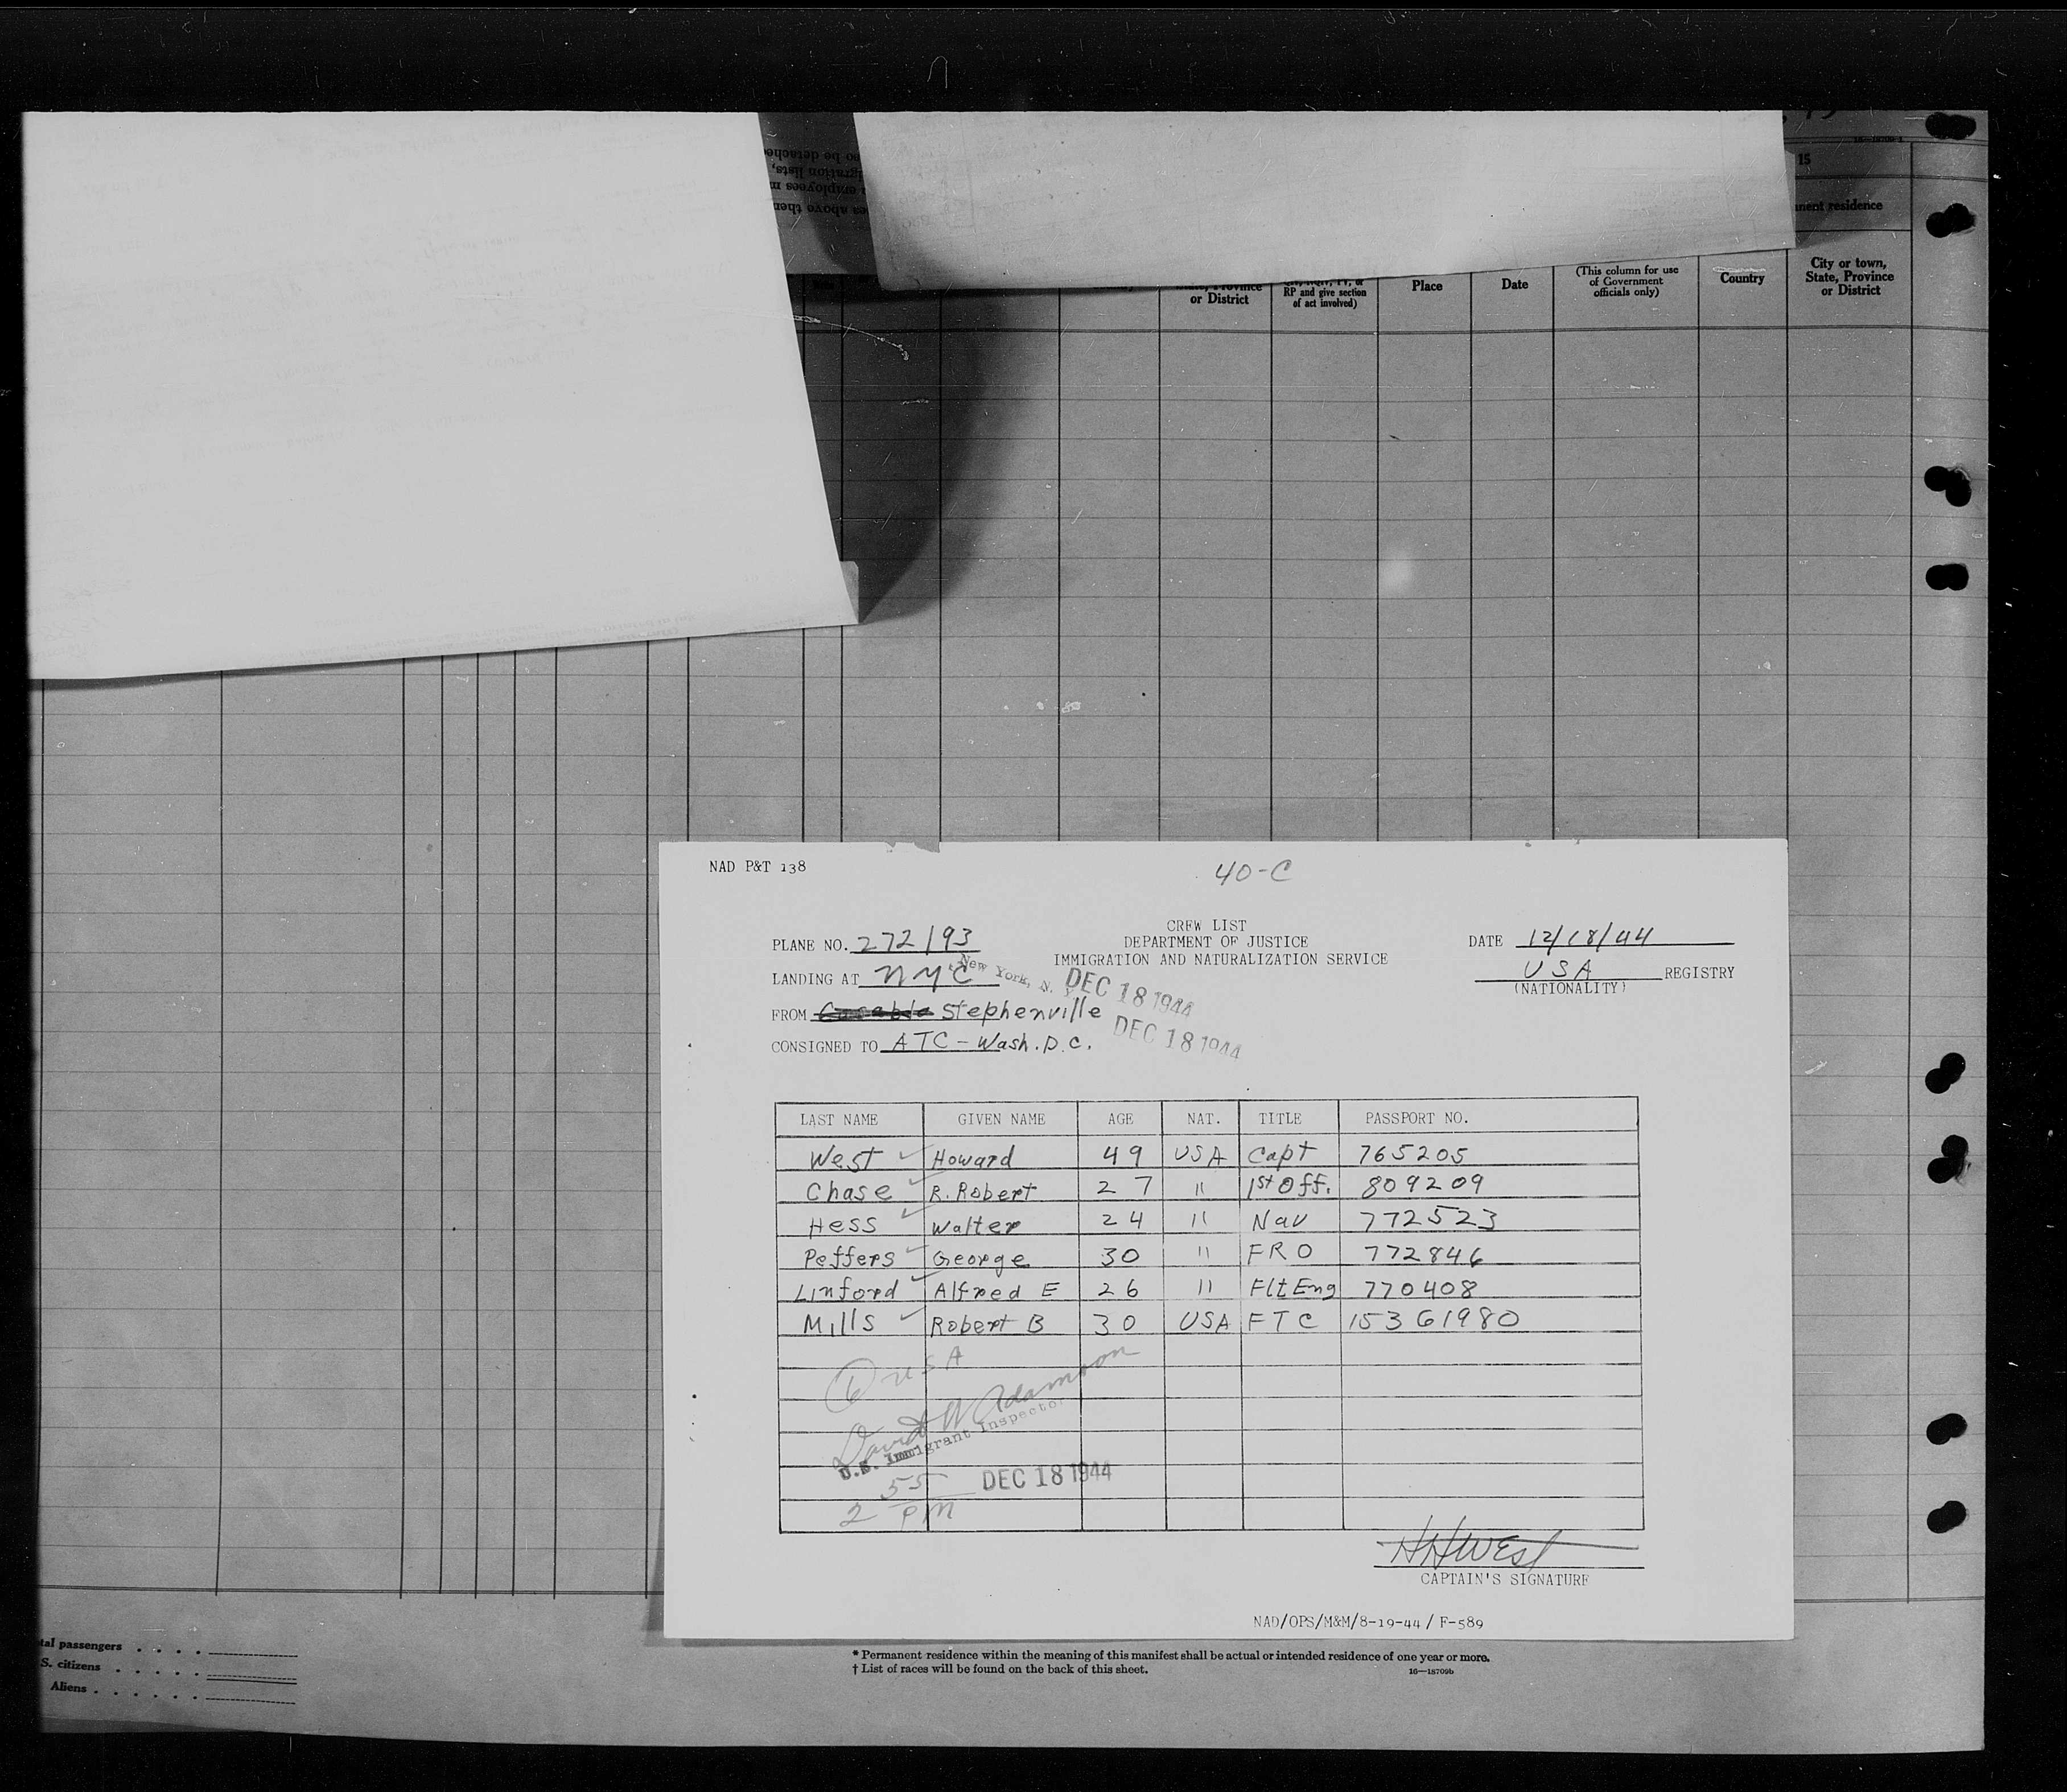 15
nent residence
or District
RP and give section
of act involved)
Place
Date
(This column for use
of Government
officials only)
Country
City or town,
State, Province
or District
NAD P&T 138
40-C
CREW LIST
DEPARTMENT OF JUSTICE
IMMIGRATION AND NATURALIZATION SERVICE
PLANE NO. 272193
DATE 12/18/44
LANDING AT NYC
New York, N. Y.
DEC 18 1944
USA REGISTRY
(NATIONALITY)
FROM Stephenville
DEC 18 1944
CONSIGNED TO ATC - Wash. D.C.
LAST NAME GIVEN NAME AGE NAT. TITLE PASSPORT NO.
West Howard 49 USA Capt 765205
Chase R. Robert 27 " 1st Off. 809209
Hess Walter 24 " Nav 772523
Peffers George 30 " FRO 772846
Linford Alfred E 26 " Flt Eng 770408
Mills Robert B 30 USA FTC 15361980
6 USA
David W Adamson
U.S. Immigrant Inspector
2 55 PM
DEC 18 1944
HHWest
CAPTAIN'S SIGNATURE
NAD/OPS/M&M/8-19-44/F-589
tal passengers . . . .
S. citizens . . . . .
Aliens . . . . . .
* Permanent residence within the meaning of this manifest shall be actual or intended residence of one year or more.
† List of races will be found on the back of this sheet.
16—18709b